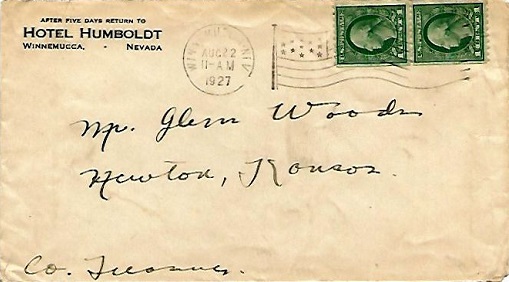 AFTER FIVE DAYS RETURN TO
HOTEL HUMBOLDT
WINNEMUCCA, - NEVADA
AUG 22
11-AM
1927
Mr. Glenn Woods
Newton, Kansas.
Co. Treasurer.